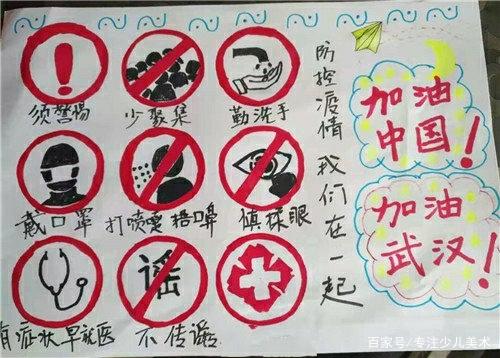 须警惕
少聚集
勤洗手
戴口罩
打喷嚏捂嘴
慎揉眼
谣
有症状早就医
不传谣
防控疫情 我们在一起
加油
中国!
加油
武汉!
百家号/专注少儿美术